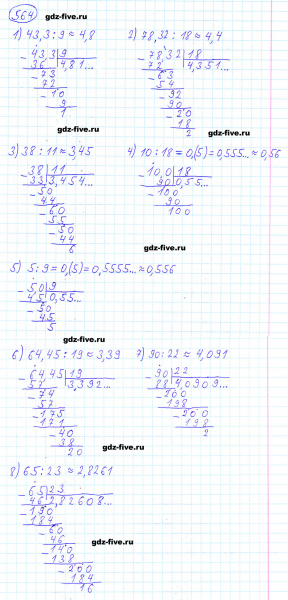 564
gdz-five.ru
1) 43,3 : 9 ≈ 4,8
2) 78,32 : 18 ≈ 4,4
43,3 | 9
36 | 4,81...
73
72
10
9
1
78,32 | 18
72 | 4,351...
63
54
92
90
20
18
2
gdz-five.ru
3) 38 : 11 ≈ 3,45
4) 10 : 18 = 0,(5) = 0,555... ≈ 0,56
38 | 11
33 | 3,454...
50
44
60
55
50
44
6
10,0 | 18
90 | 0,55...
100
90
100
gdz-five.ru
5) 5 : 9 = 0,(5) = 0,5555... ≈ 0,556
5,0 | 9
45 | 0,55...
50
45
5
gdz-five.ru
6) 64,45 : 19 ≈ 3,39
7) 90 : 22 ≈ 4,091
64,45 | 19
57 | 3,392...
74
57
175
171
40
38
20
90 | 22
88 | 4,0909...
200
198
200
198
2
gdz-five.ru
8) 65 : 23 ≈ 2,8261
65 | 23
46 | 2,82608...
190
184
60
46
140
138
200
184
16
gdz-five.ru